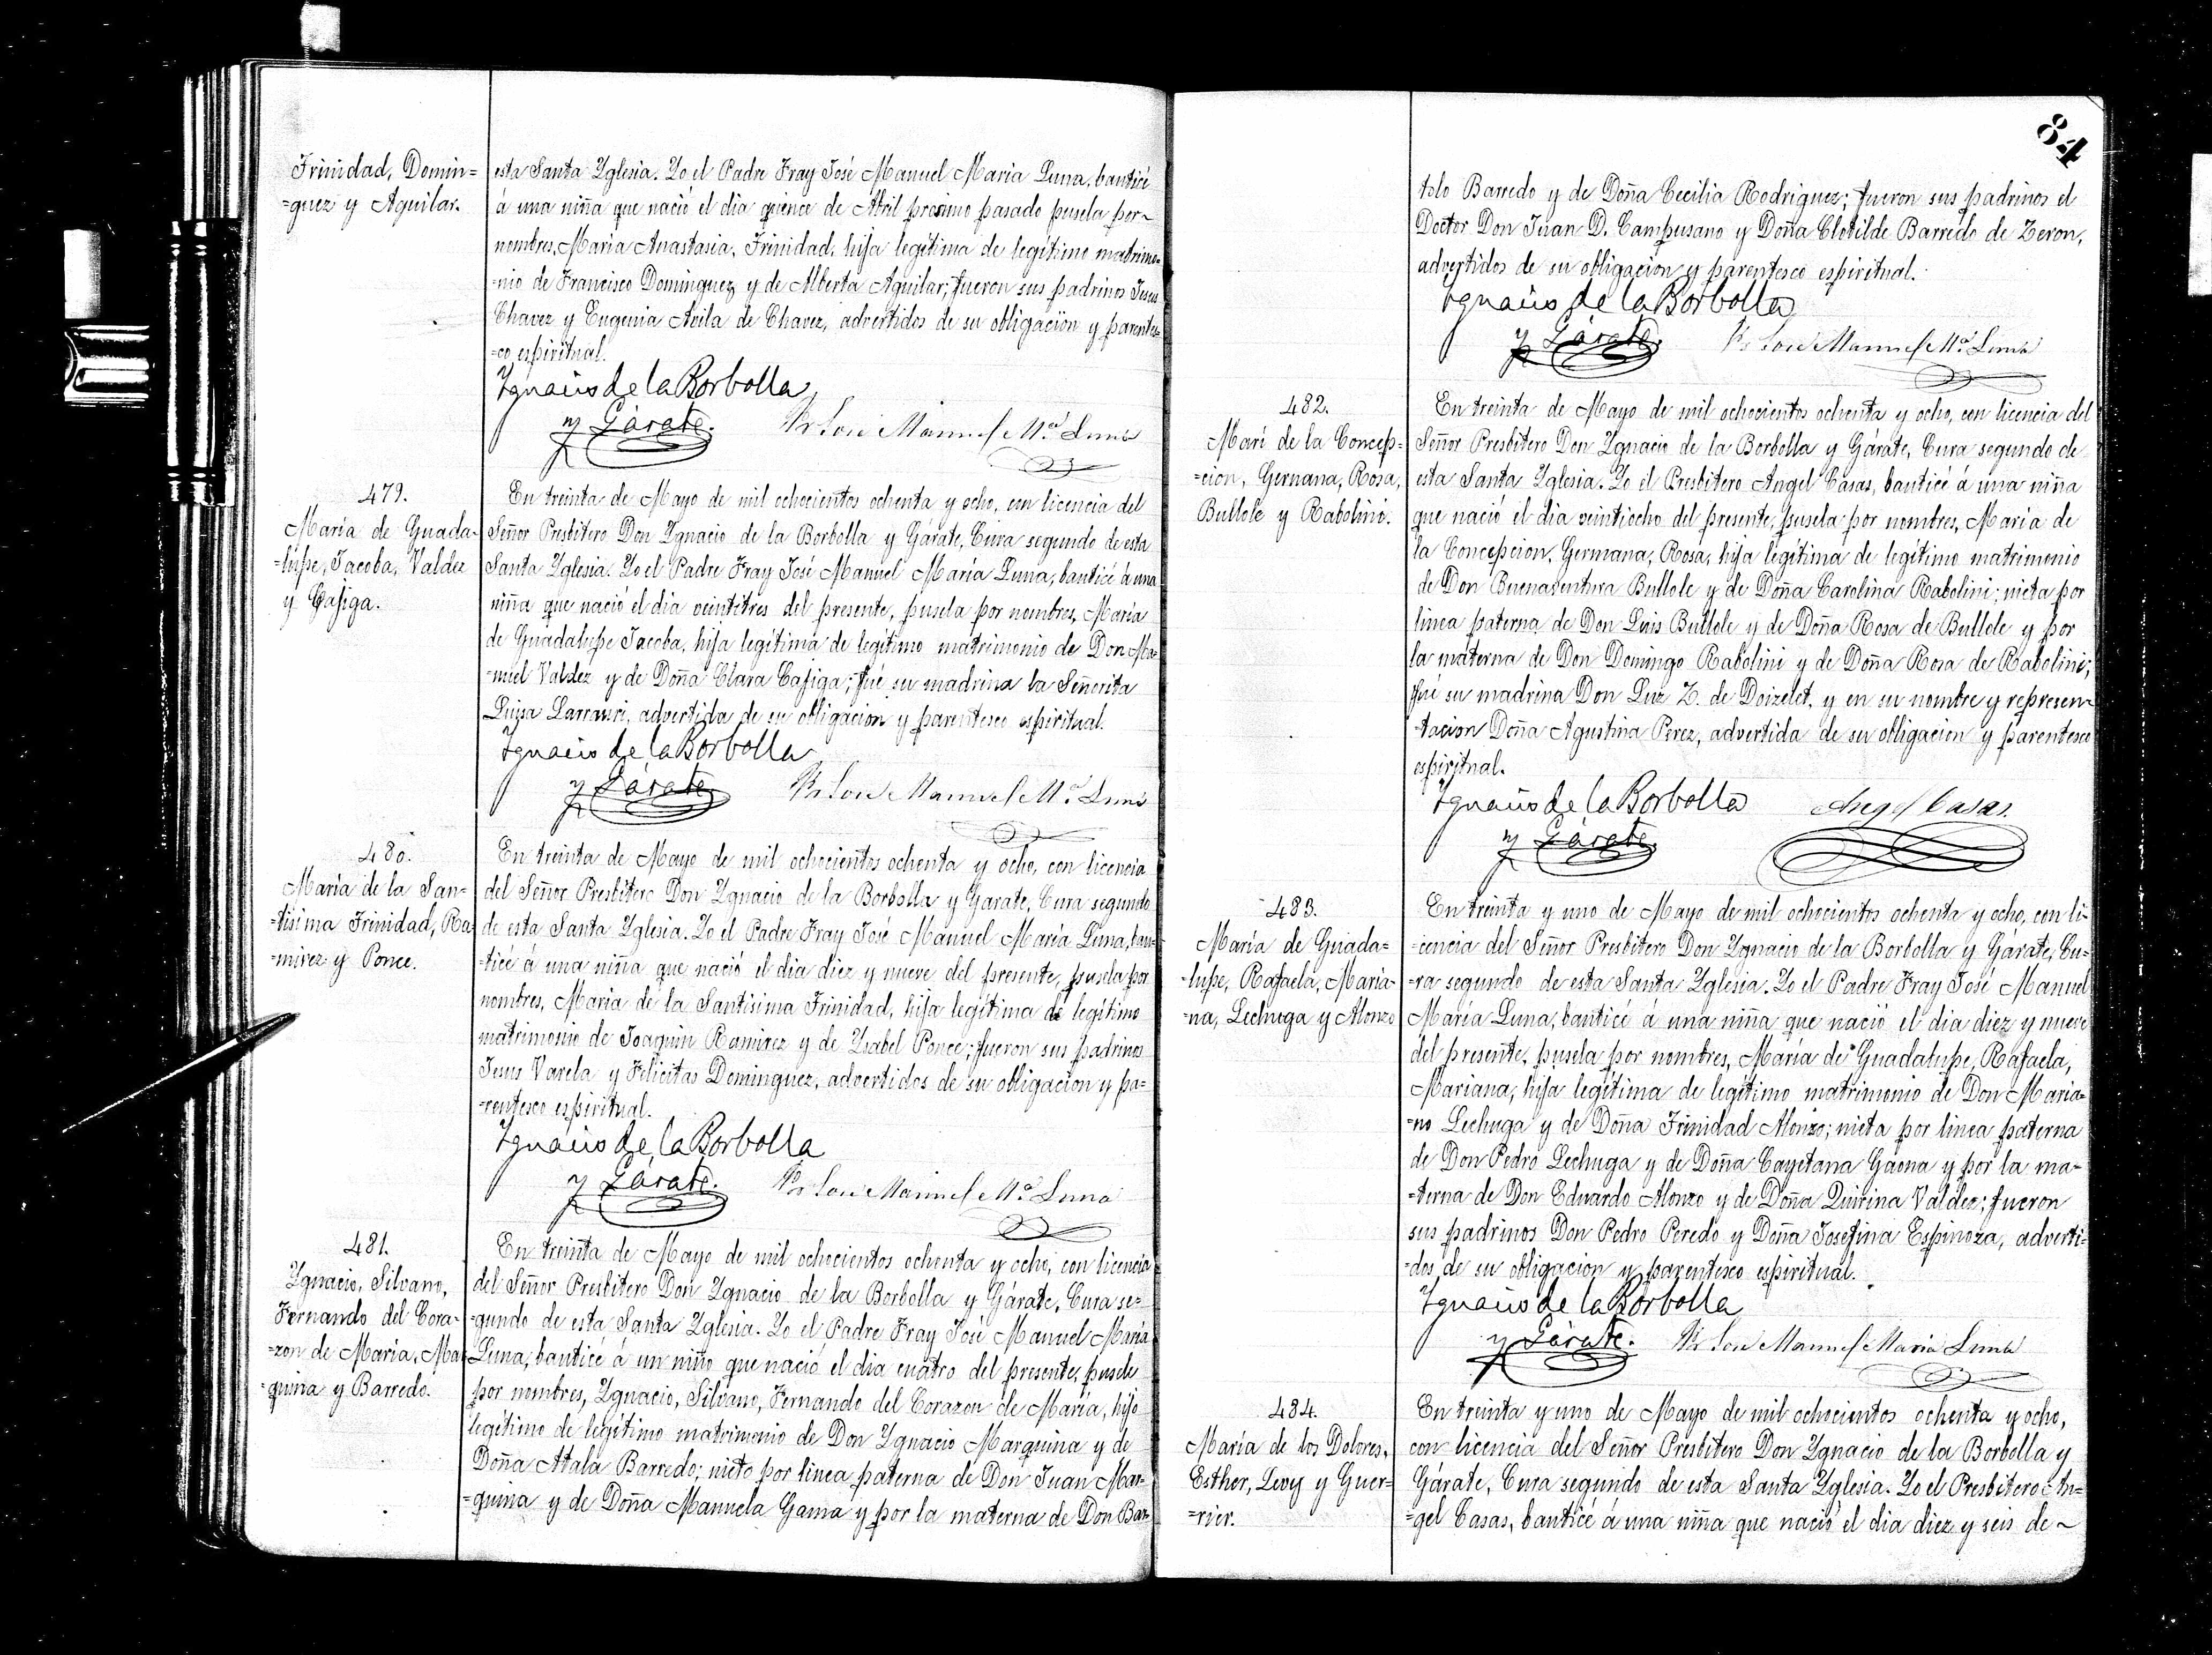 Trinidad, Domin=
=guez y Aguilar.
esta Santa Yglesia. Yo el Padre Fray José Manuel María Luna, bauticé
á una niña que nació el dia quince de Abril proximo pasado pusela por~
nombres, María Anastasia, Trinidad, hija legítima de legítimo matrimo=
=nio de Francisco Dominguez y de Alberta Aguilar; fueron sus padrinos Jesus
Chavez y Eugenia Avila de Chavez, advertidos de su obligacion y parentes=
=co espiritual.
Ygnacio de la Borbolla
y Gárate. Fr José Manuel Ma. Luna
479.
María de Guada=
=lupe, Jacoba, Valdez
y Cajiga.
En treinta de Mayo de mil ochocientos ochenta y ocho, con licencia del
Señor Presbitero Don Ygnacio de la Borbolla y Gárate, Cura segundo de esta
Santa Yglesia. Yo el Padre Fray José Manuel María Luna, bauticé á una
niña que nació el dia veintitres del presente, pusela por nombres, María
de Guadalupe Jacoba, hija legítima de legítimo matrimonio de Don Ma=
=nuel Valdez y de Doña Clara Cajiga; fué su madrina la Señorita
Luisa advertida de su obligacion y parentesco espiritual.
Ygnacio de la Borbolla
y Gárate Fr José Manuel Ma. Luna
480.
María de la San=
=tisima Trinidad, Ra=
=mirez y Ponce.
En treinta de Mayo de mil ochocientos ochenta y ocho, con licencia
del Señor Presbitero Don Ygnacio de la Borbolla y Garate, Cura segundo
de esta Santa Yglesia. Yo el Padre Fray José Manuel María Luna, bau=
=ticé á una niña que nació el dia diez y nueve del presente, pusela por
nombres, María de la Santisima Trinidad, hija legítima de legítimo
matrimonio de Joaquin Ramirez y de Ysabel Ponce; fueron sus padrinos
Jesus Varela y Felicitas Dominguez, advertidos de su obligacion y pa=
=rentesco espiritual.
Ygnacio de la Borbolla
y Gárate. Fr José Manuel Ma. Luna
481.
Ygnacio, Silvano,
Fernando del Cora=
=zon de María, Mar=
=quina y Barredo.
En treinta de Mayo de mil ochocientos ochenta y ocho, con licencia
del Señor Presbitero Don Ygnacio de la Borbolla y Gárate, Cura se=
=gundo de esta Santa Yglesia. Yo el Padre Fray José Manuel María
Luna, bauticé á un niño que nació el dia cuatro del presente, pusele
por nombres, Ygnacio, Silvano, Fernando del Corazon de María, hijo
legítimo de legítimo matrimonio de Don Ygnacio Marquina y de
Doña Atala Barredo; nieto por linea paterna de Don Juan Mar=
=quina y de Doña Manuela Gama y por la materna de Don Bar=
84
tolo Barredo y de Doña Cecilia Rodriguez; fueron sus padrinos el
Doctor Don Juan D. Campusano y Doña Clotilde Barredo de Zeron,
advertidos de su obligacion y parentesco espiritual.
Ygnacio de la Borbolla
y Gárate. Fr José Manuel Ma. Luna
482.
Marí de la Concep=
=cion, Germana, Rosa,
Bullole y Rabolini.
En treinta de Mayo de mil ochocientos ochenta y ocho, con licencia del
Señor Presbitero Don Ygnacio de la Borbolla y Gárate, Cura segundo de
esta Santa Yglesia. Yo el Presbitero Angel Casas, bauticé á una niña
que nació el dia veintiocho del presente, pusela por nombres, María de
la Concepcion, Germana, Rosa, hija legítima de legítimo matrimonio
de Don Buenaventura Bullole y de Doña Carolina Rabolini; nieta por
linea paterna de Don Luis Bullole y de Doña Rosa de Bullole y por
la materna de Don Domingo Rabolini y de Doña Rosa de Rabolini;
fué su madrina Don Luz Z. de Doizelet, y en su nombre y represen=
=tacion Doña Agustina Perez, advertida de su obligacion y parentesco
espiritual.
Ygnacio de la Borbolla Angel Casas.
y Gárate.
483.
María de Guada=
=lupe, Rafaela, Maria=
=na, Lechuga y Alonzo
En treinta y uno de Mayo de mil ochocientos ochenta y ocho, con li=
=cencia del Señor Presbitero Don Ygnacio de la Borbolla y Gárate, Cu=
=ra segundo de esta Santa Yglesia. Yo el Padre Fray José Manuel
María Luna, bauticé á una niña que nació el dia diez y nueve
del presente, pusela por nombres, María de Guadalupe, Rafaela,
Mariana, hija legítima de legítimo matrimonio de Don Maria=
=no Lechuga y de Doña Trinidad Alonzo; nieta por linea paterna
de Don Pedro Lechuga y de Doña Cayetana Gaona y por la ma=
=terna de Don Eduardo Alonzo y de Doña Quirina Valdez; fueron
sus padrinos Don Pedro Peredo y Doña Josefina Espinoza, adverti=
=dos de su obligacion y parentesco espiritual.
Ygnacio de la Borbolla
y Gárate. Fr José Manuel María Luna
484.
María de los Dolores,
Esther, Levy y Guer=
=rier.
En treinta y uno de Mayo de mil ochocientos ochenta y ocho,
con licencia del Señor Presbitero Don Ygnacio de la Borbolla y
Gárate, Cura segundo de esta Santa Yglesia. Yo el Presbitero An=
=gel Casas, bauticé á una niña que nació el dia diez y seis de~